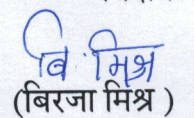 बि. मिश्र
(बिरजा मिश्र )